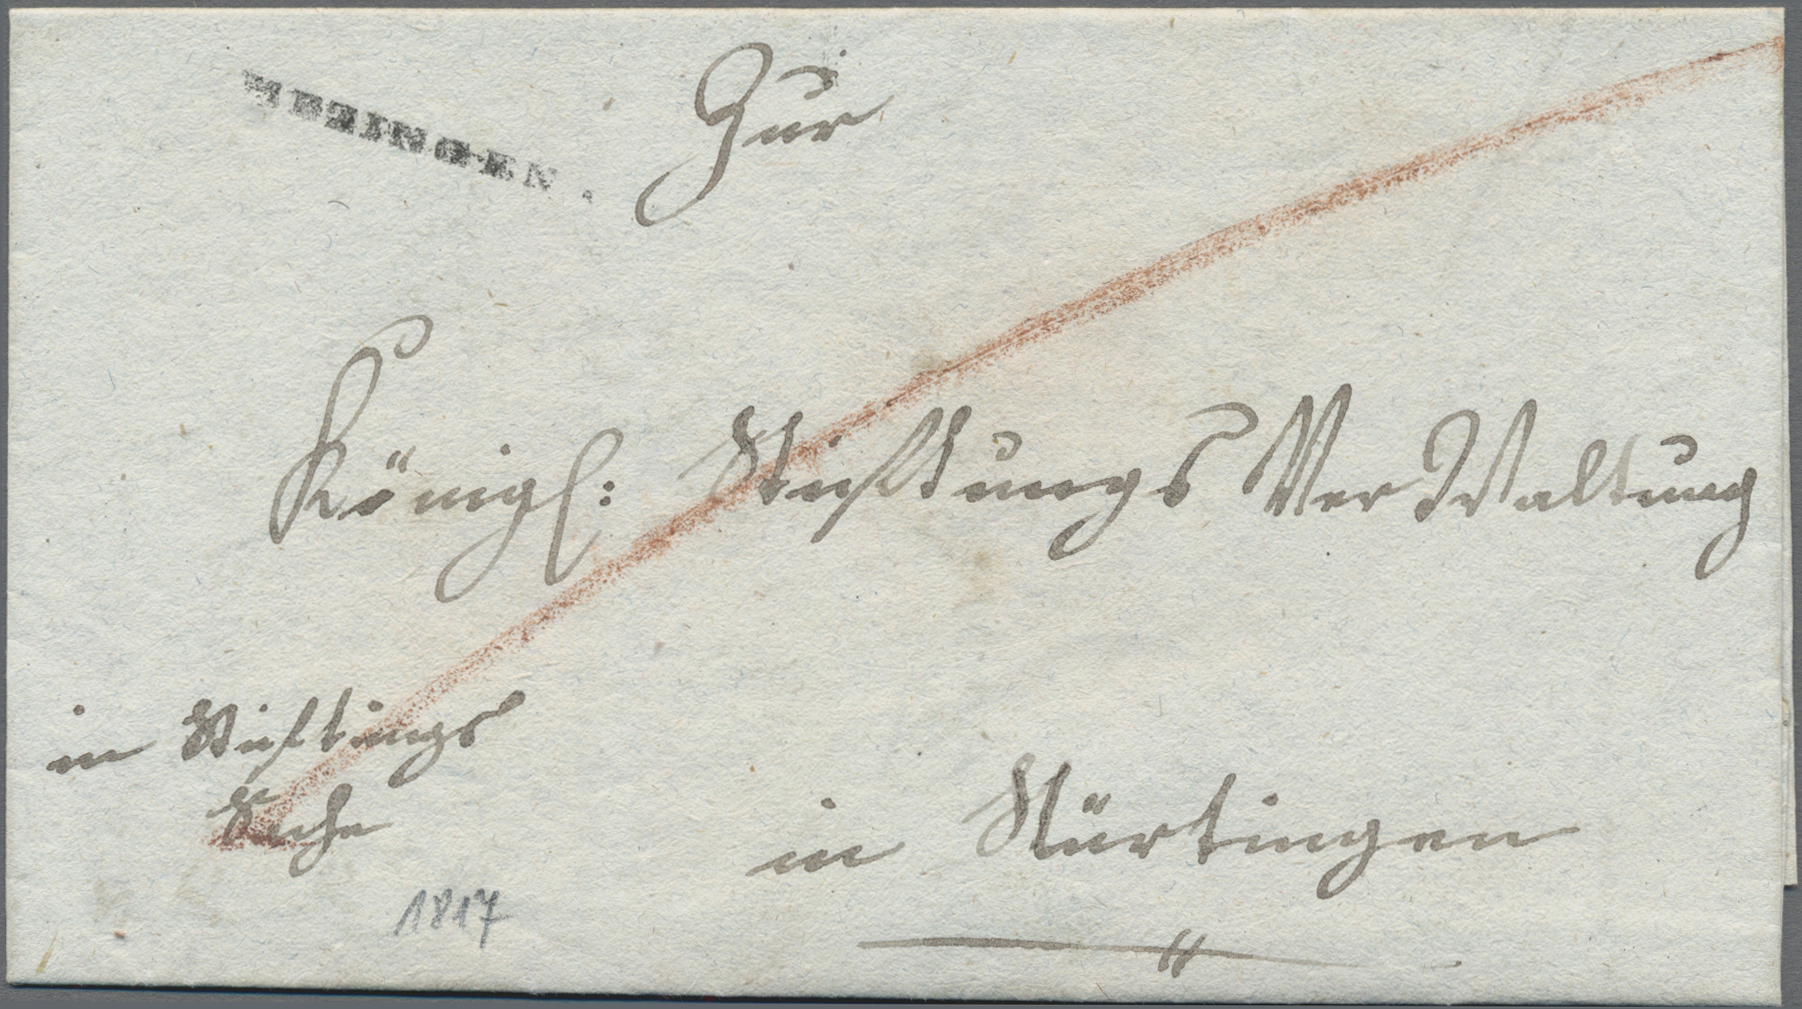 MEZINGEN.
Zur
Königl: Stiftungs VerWaltung
in Stiftungs
Sache
in Nürtingen
1817